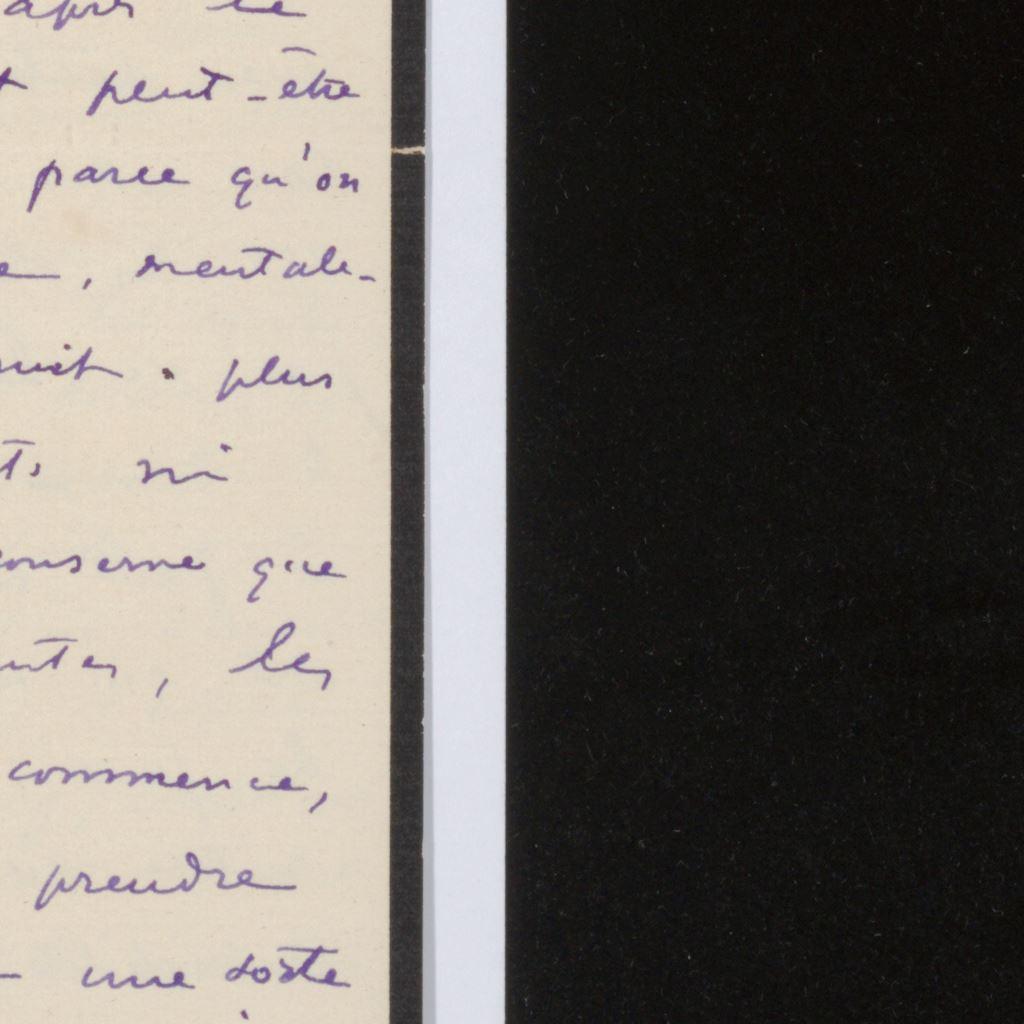 après le
peut-être
parce qu'on
, mentale-
plus
ni
conserve que
, les
commence,
prendre
une sorte